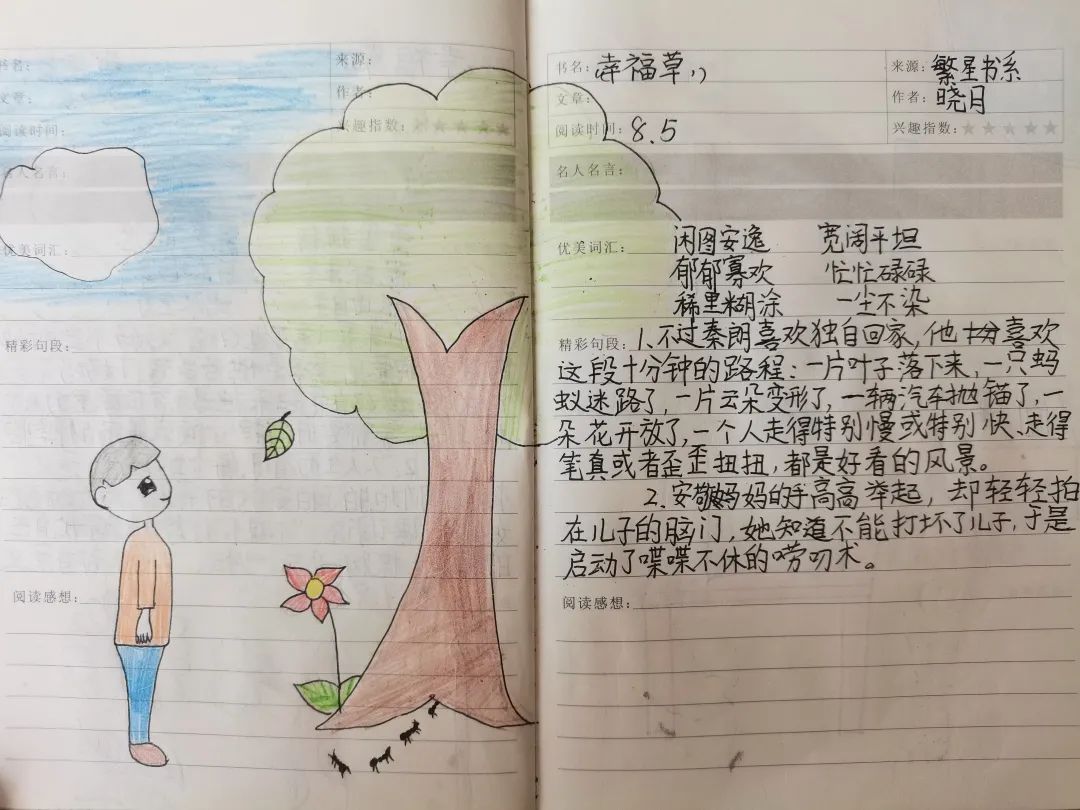 书名:
来源:
文章:
作者:
阅读时间:
兴趣指数:★★★★★
名人名言:
优美词汇:
精彩句段:
阅读感想:
书名: 幸福草,,
来源: 繁星书系
文章:
作者: 晓月
阅读时间: 8.5
兴趣指数:★★★★★
名人名言:
优美词汇: 闲图安逸 宽阔平坦
郁郁寡欢 忙忙碌碌
稀里糊涂 一尘不染
精彩句段: 1.不过秦朗喜欢独自回家,他十分喜欢
这段十分钟的路程:一片叶子落下来,一只蚂
蚁迷路了,一片云朵变形了,一辆汽车抛锚了,一
朵花开放了,一个人走得特别慢或特别快、走得
笔真或者歪歪扭扭,都是好看的风景。
2.安敬妈妈的手高高举起,却轻轻拍
在儿子的脑门,她知道不能打坏了儿子,于是
启动了喋喋不休的唠叨术。
阅读感想: